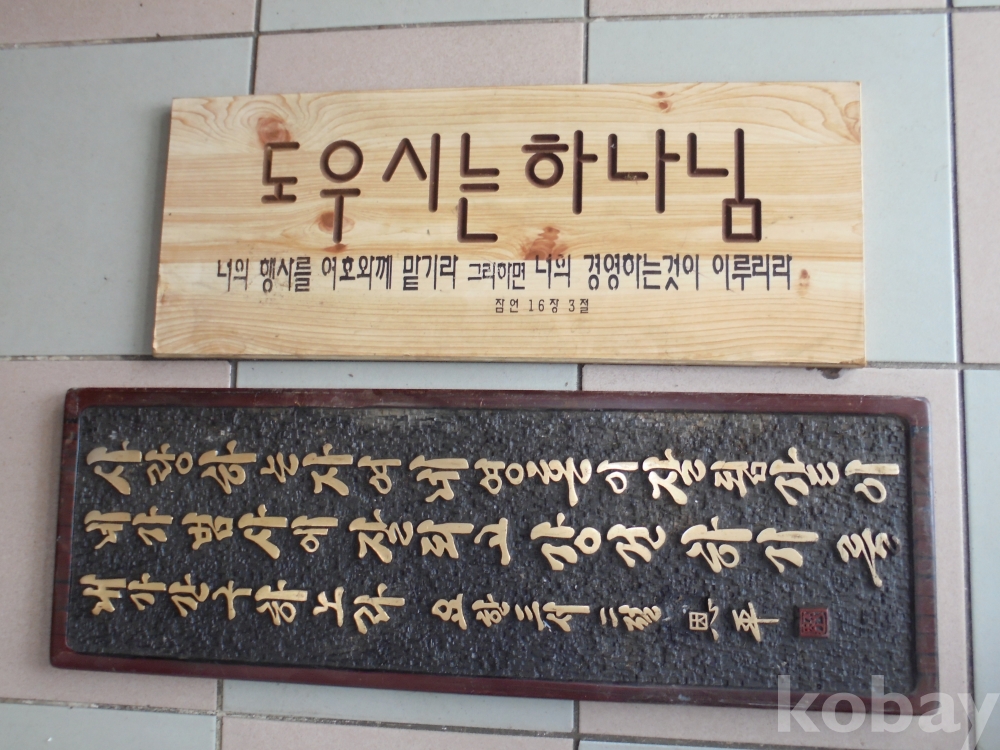 도우시는하나님
너의 행사를 여호와께 맡기라 그리하면 너의 경영하는것이 이루리라
잠언 16장 3절
사랑하는자여 네 영혼이 잘됨같이
네가 범사에 잘되고 강건하기를
내가 간구하노라 요한三서 二절 恩平
kobay